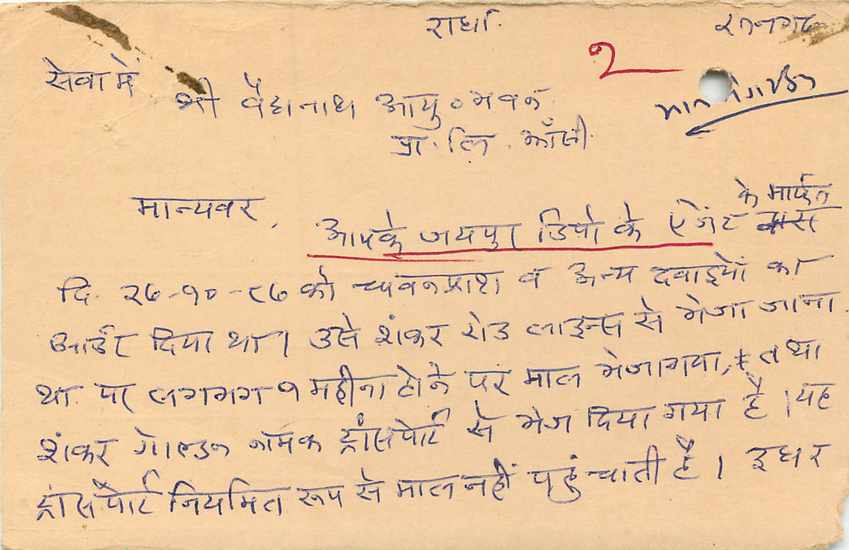 राधा. रतनगढ
२
सेवा में
श्री वैद्यनाथ आयु० भवन
प्रा. लि. झाँसी.
मान्यवर,
आपके जयपुर डिपो के ऐजेंट के मार्फत
दि. २७-१०-८७ को च्यवनप्राश व अन्य दवाइयों का
आर्डर दिया था। उसे शंकर रोड लाइन्स से भेजा जाना
था पर लगभग १ महीना होने पर माल भेजा गया, तथा
शंकर गोल्डन नामक ट्रांसपोर्ट से भेज दिया गया है। यह
ट्रांसपोर्ट नियमित रूप से माल नहीं पहुंचाती है। इधर